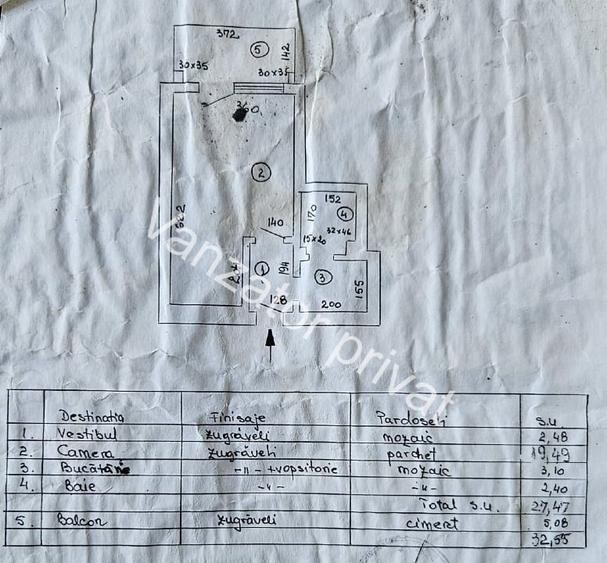 372
5
142
30x35
30x35
2
622
140
152
170
4
32x46
15x20
1
194
3
155
128
200
Vanzator privat
Destinatia Finisaje Pardoseli s.u.
1. Vestibul zugrăveli mozaic 2,48
2. Camera zugrăveli parchet 19,49
3. Bucătărie -"- +vopsitorie mozaic 3,10
4. Baie -"- -"- 2,40
Total s.u. 27,47
5. Balcon zugrăveli ciment 5,08
32,55